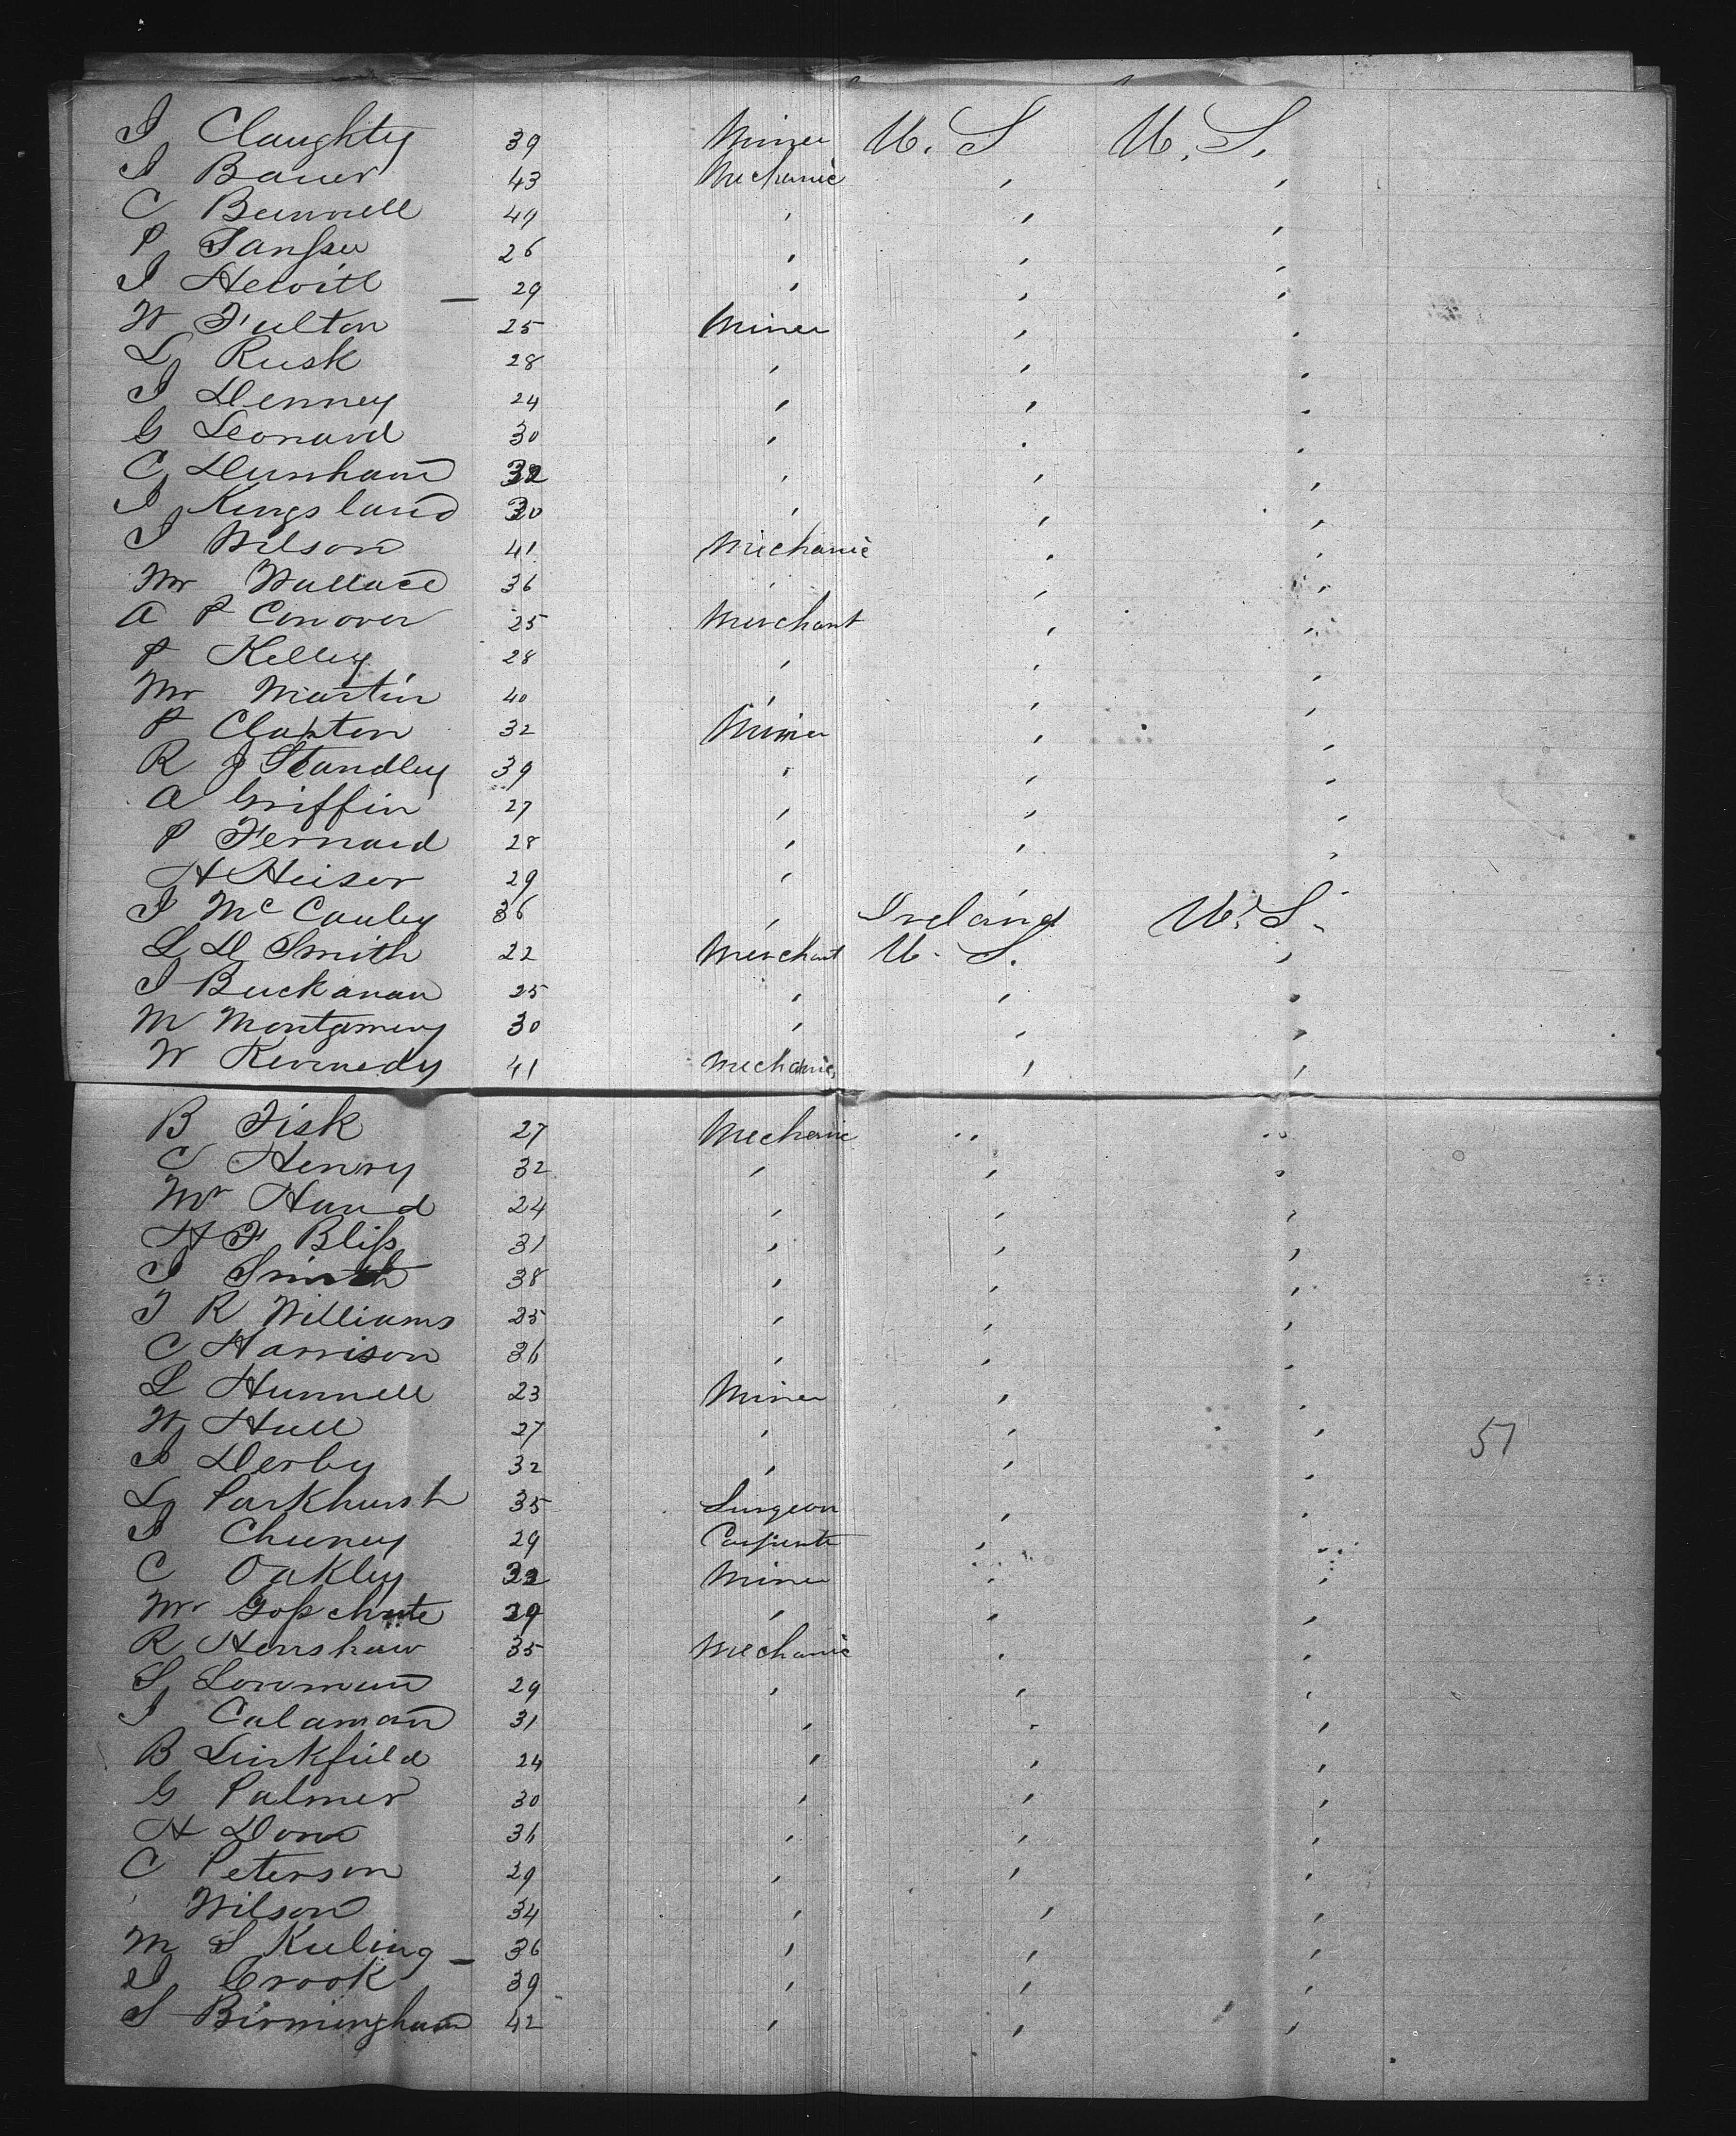 J Claughty 39 Miner U. S U. S.
J Bauer 43 Mechanic , ,
C Bunnell 49 , , ,
P Janssen 26 , , ,
J Hewitt — 29 , , ,
W Fulton 25 Miner , ,
L Rusk 28 , , ,
J Denney 24 , , ,
G Leonard 30 , , ,
C Dunham 32 , , ,
J Kingsland 30 , , ,
J Wilson 41 Mechanic , ,
Mr Wallace 36 , , ,
A P Conover 25 Merchant , ,
P Kelley 28 , , ,
Mr Martin 40 , , ,
P Clapton 32 Miner , ,
R J Standley 39 , , ,
A Griffin 27 , , ,
P Fernard 28 , , ,
H Heiser 29 , , ,
J McCauley 36 , Ireland U. S.
L D Smith 22 Merchant U. S. ,
J Buckanan 25 , , ,
M Montgamery 30 , , ,
W Kennedy 41 Mechanic , ,
B Fisk 27 Mechanic , ,
C Henry 32 , , ,
Mr Hand 24 , , ,
H F Bliss 31 , , ,
J Smith 38 , , ,
J R Williams 25 , , ,
C Harrison 36 , , ,
L Hunnell 23 Miner , ,
W Hull 27 , , , 57
J Derby 32 , , ,
L Parkhurst 35 Surgeon , ,
J Cheney 29 Carpenter , ,
C Oakley 32 Miner , ,
Mr 29 , , ,
R Henshaw 35 Mechanic , ,
S Lowman 29 , , ,
J Calaman 31 , , ,
B Linkfield 24 , , ,
G Palmer 30 , , ,
H Dow 36 , , ,
C Peterson 29 , , ,
, Wilson 34 , , ,
M S Kuling — 36 , , ,
J Crook 39 , , ,
S Birmingham 42 , , ,